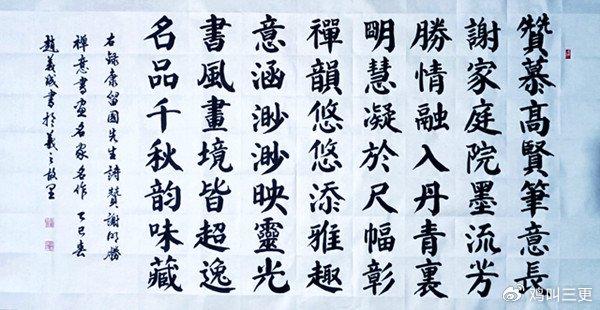 贊慕高賢筆意長
謝家庭院墨流芳
勝情融入丹青裏
明慧凝於尺幅彰
禪韻悠悠添雅趣
意涵渺渺映靈光
書風畫境皆超逸
名品千秋韵味藏
右録康留國先生詩贊謝明勝
禅意書画名家名作 乙巳春
趙義成書於羲之故里
鸡叫三更